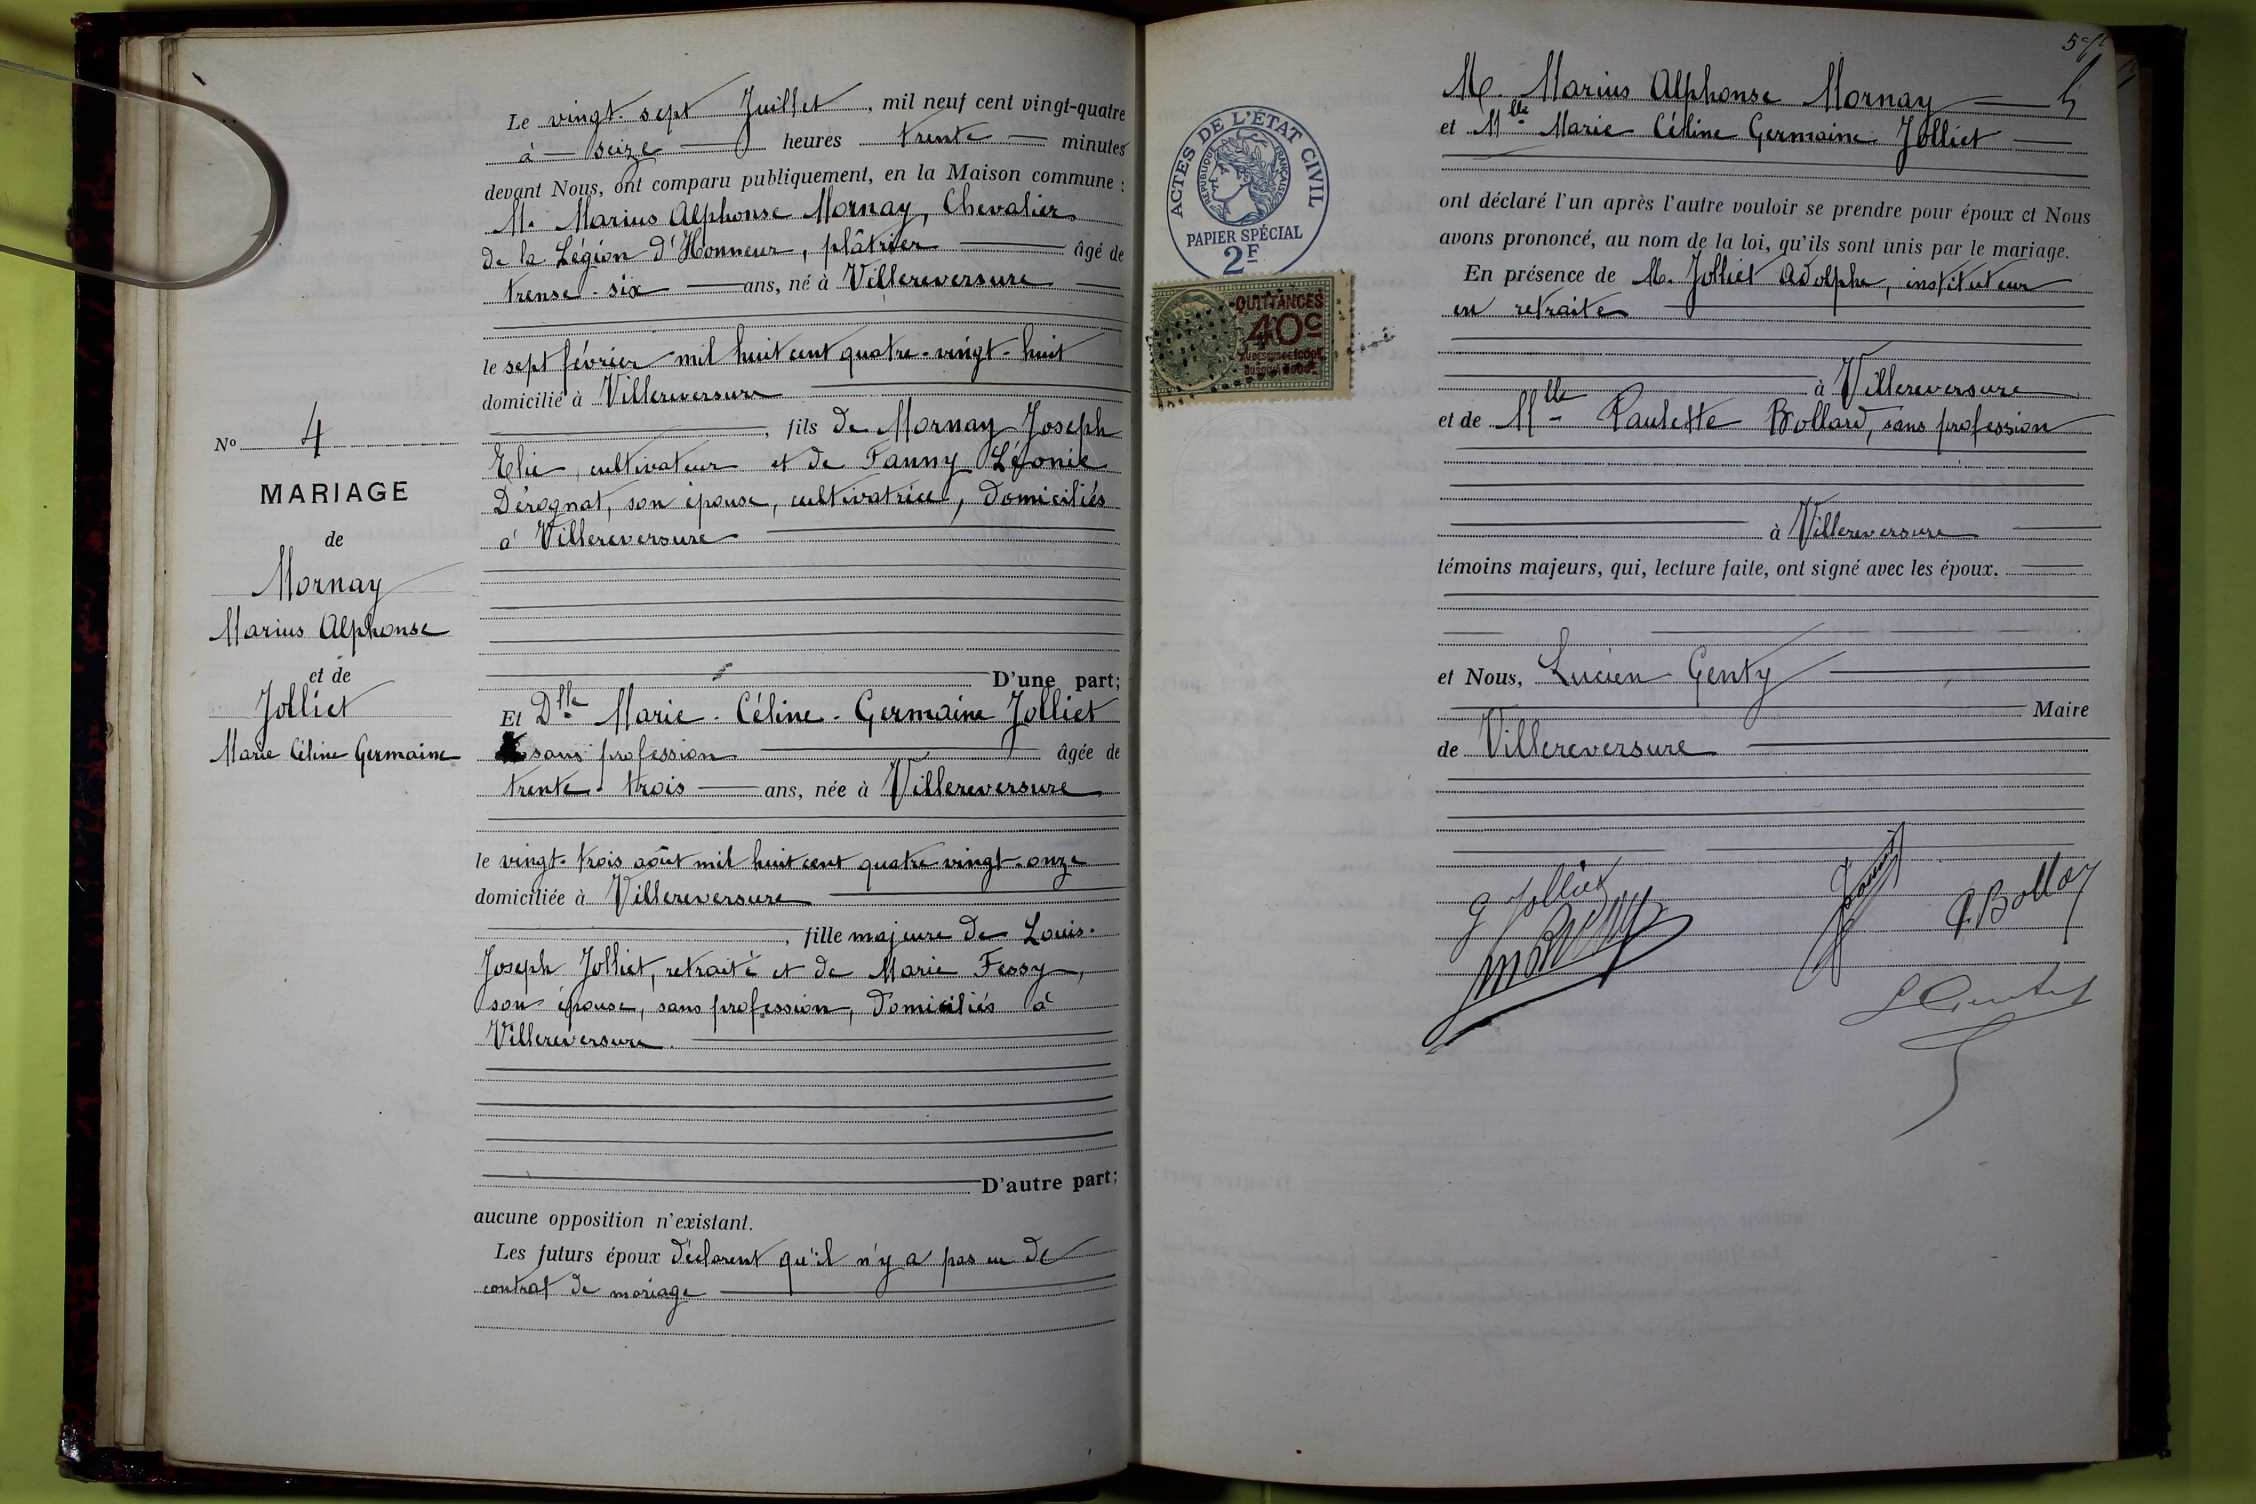 N° 4
MARIAGE
de
Mornay
Marius Alphonse
et de
Jolliet
Marie Céline Germaine
Le vingt-sept Juillet, mil neuf cent vingt-quatre
à seize heures trente minutes
devant Nous, ont comparu publiquement, en la Maison commune :
M. Marius Alphonse Mornay, Chevalier
de la Légion d'Honneur, plâtrier âgé de
trense-six ans, né à Villereversure
le sept février mil huit cent quatre-vingt-huit
domicilié à Villereversure
, fils de Mornay Joseph
Elie, cultivateur et de Fanny Léonie
Dérognat, son épouse, cultivatrice, domiciliés
à Villereversure
D'une part;
Et Dlle Marie-Céline-Germaine Jolliet
sans profession âgée de
trente-trois ans, née à Villereversure
le vingt-trois août mil huit cent quatre vingt-onze
domiciliée à Villereversure
, fille majeure de Louis-
Joseph Jolliet, retraité et de Marie Fessy,
son épouse, sans profession, domiciliés à
Villereversure.
D'autre part;
aucune opposition n'existant.
Les futurs époux déclarent qu'il n'y a pas eu de
contrat de mariage
ACTES DE L'ETAT CIVIL
REPUBLIQUE FRANÇAISE
PAPIER SPÉCIAL
2F
QUITTANCES
40c
M. Marius Alphonse Mornay
et Mlle Marie Céline Germaine Jolliet
ont déclaré l'un après l'autre vouloir se prendre pour époux et Nous
avons prononcé, au nom de la loi, qu'ils sont unis par le mariage.
En présence de M. Jolliet Adolphe, instituteur
en retraite
à Villereversure
et de Mlle Paulette Bollard, sans profession
à Villereversure
témoins majeurs, qui, lecture faite, ont signé avec les époux.
et Nous, Lucien Genty
Maire
de Villereversure
G Jolliet
Mornay
P. Bollard